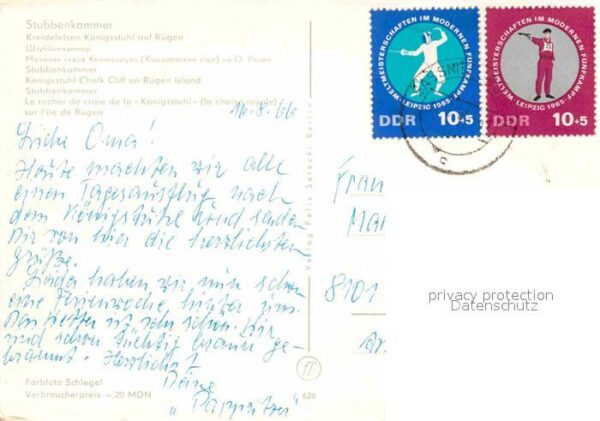 Stubbenkammer
Kreidefelsen Königsstuhl auf Rügen
Штуббенкаммер
Меловая скала Кенигсштуль (Королевский стул) на О. Рюген
Stubbenkammer
Königsstuhl Chalk Cliff on Rügen Island
Stubbenkammer
Le rocher de craie de la «Königsstuhl» (la chaise royale)
sur l'île de Rügen
16.8.66
Liebe Oma!
Heute machten wir alle
einen Tagesausflug nach
dem Königsstuhl und senden
Dir von hier die herzlichsten
Grüße.
Leider haben wir nun schon
eine Ferienwoche hinter uns.
Das Wetter ist sehr schön. Wir
sind schon tüchtig braun ge-
brannt. Herzlichst
Deine
Farbfoto Schlegel
Verbraucherpreis –,20 MDN
626
Verlag Felix Setecki Berlin
WELTMEISTERSCHAFTEN IM MODERNEN FÜNFKAMPF
LEIPZIG 1965
DDR 10+5
WELTMEISTERSCHAFTEN IM MODERNEN FÜNFKAMPF
LEIPZIG 1965
DDR 10+5
Frau
8101
privacy protection
Datenschutz